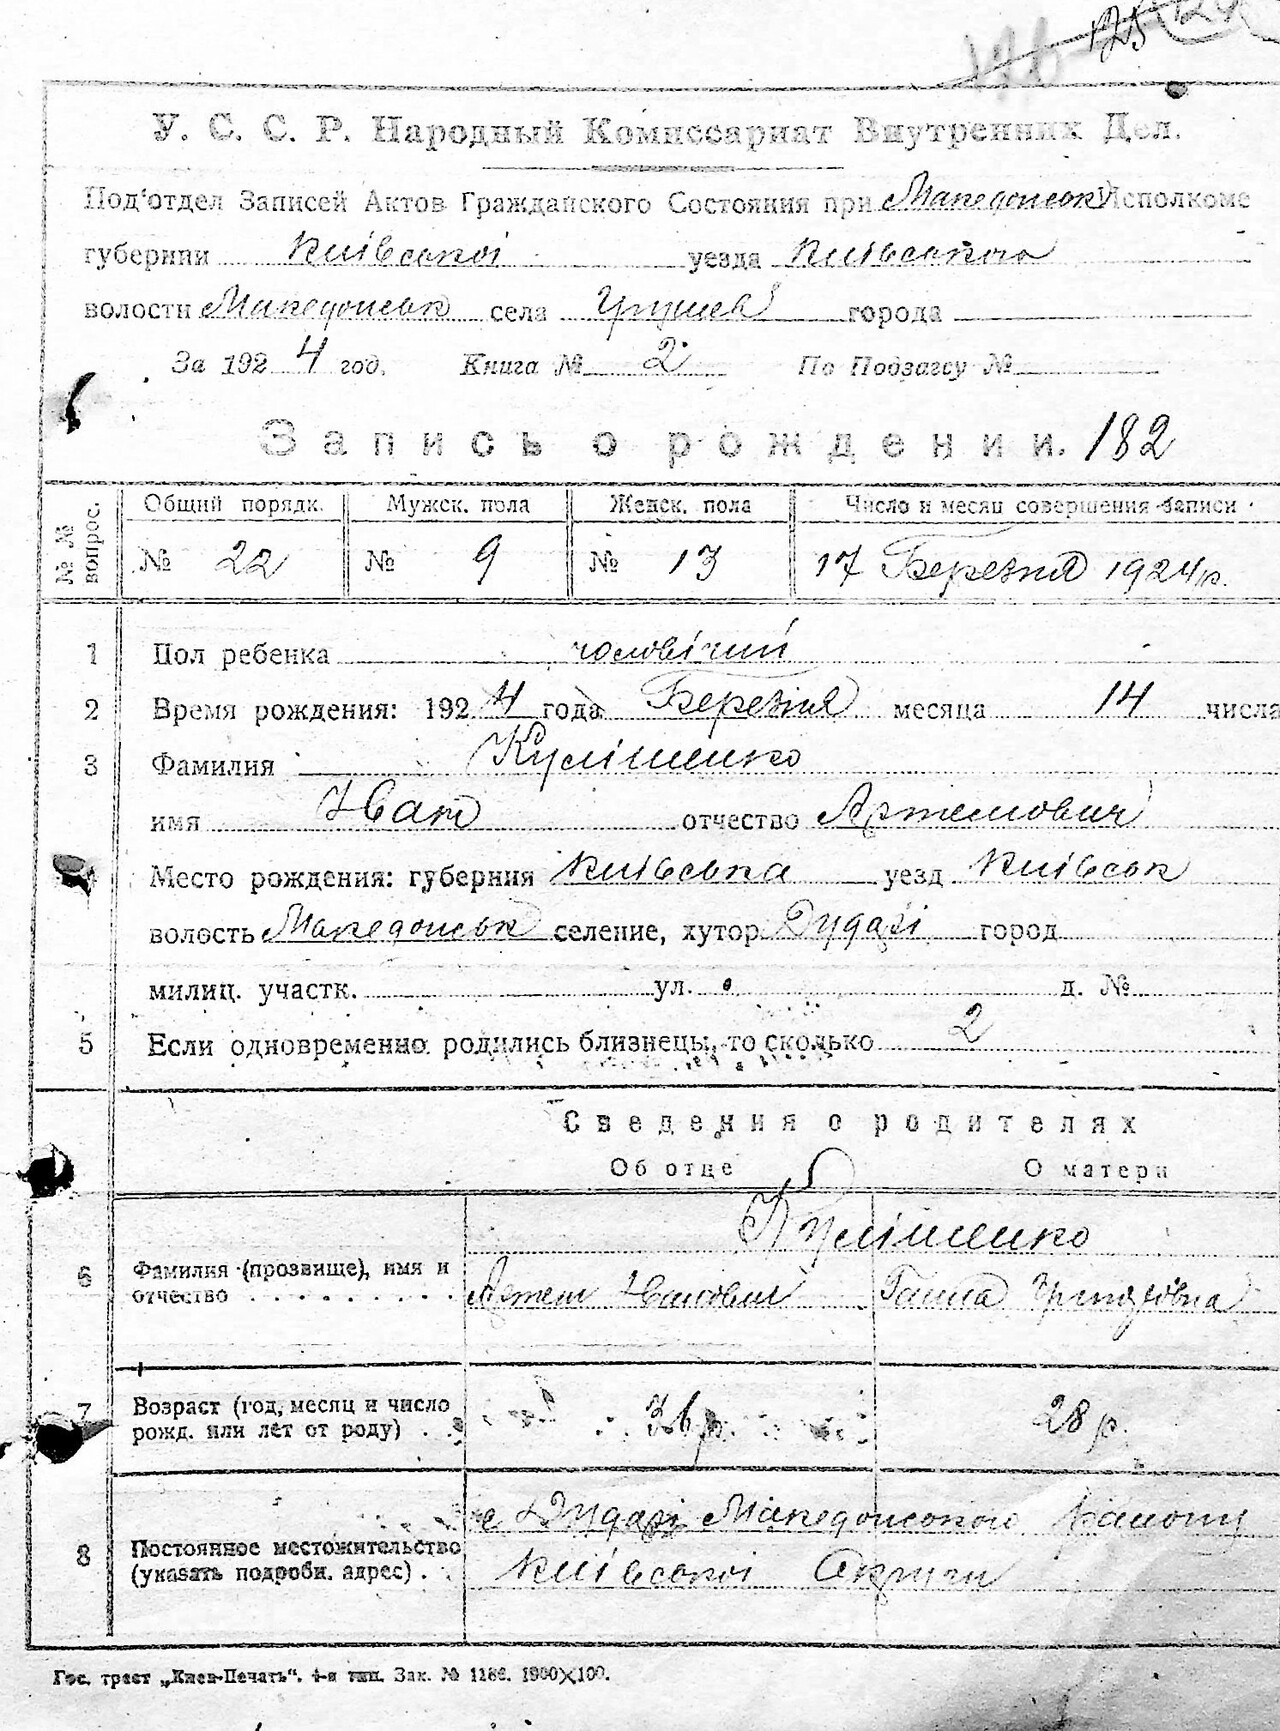 125
У. С. С. Р. Народный Комиссариат Внутренних Дел.
Под'отдел Записей Актов Гражданского Состояния при Македонськ Исполкоме
губернии Київської уезда Київського
волости Македонськ села Грушев города
За 1924 год. Книга № 2 По Подзагсу №
Запись о рождении. 182
№ № вопрос. Общий порядк. Мужск. пола Женск. пола Число и месяц совершения записи
№ 22 № 9 № 13 17 Березня 1924 р.
1 Пол ребенка чоловічий
2 Время рождения: 1924 года Березня месяца 14 числа
3 Фамилия Кулішенко
имя Иван отчество Артемович
Место рождения: губерния Київська уезд Київськ
волость Македонськ селение, хутор Дударі город
милиц. участк. ул. д. №
5 Если одновременно родились близнецы, то сколько 2
Сведения о родителях
Об отце О матери
Кулішенко
6 Фамилия (прозвище), имя и
отчество Артем Иванович Ганна Григорівна
7 Возраст (год, месяц и число
рожд. или лет от роду) 36 р. 28 р.
с Дударі Македонського району
8 Постоянное местожительство
(указать подробн. адрес) Київської Округи
Гос. трест „Киев-Печать“. 4-я тип. Зак. № 1186. 1900×100.